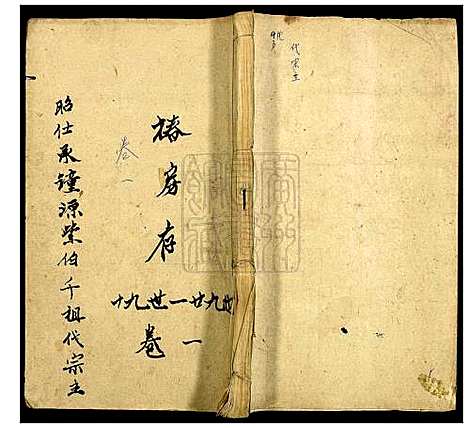 昭仕承鐘源紫伯千祖代宗主
卷一
椿房存
十九世一廿九世
卷一
代宗主